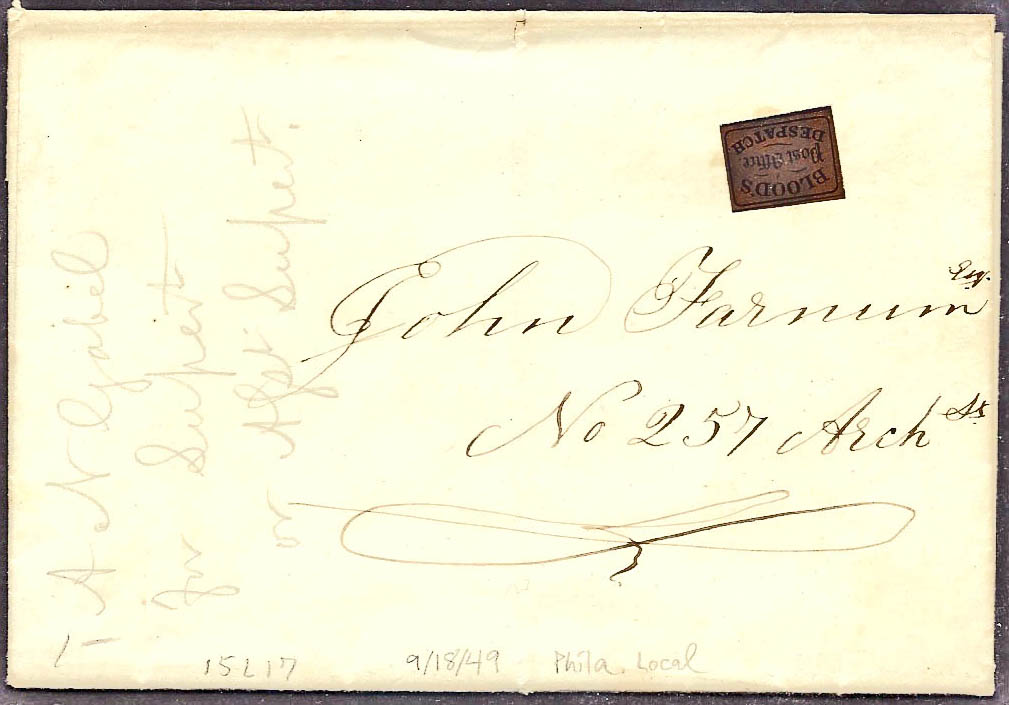 BLOOD'S
Post Office
DESPATCH
John Farnum Esq.
No 257 Arch St.
A N Gabel
for Supert
or Asst Supert.
15L17
9/18/49
Phila. Local